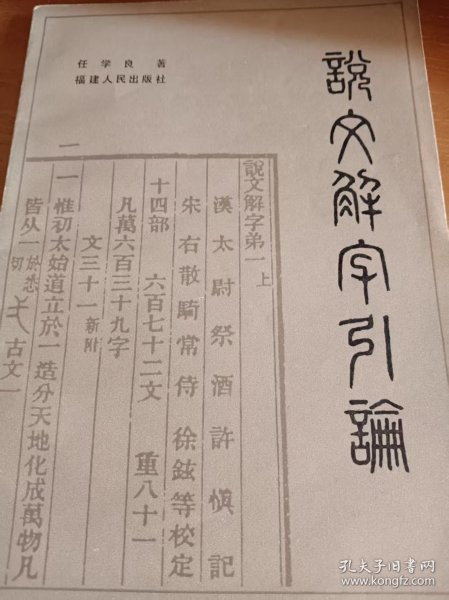 說文解字引論
任学良 著
福建人民出版社
說文解字弟一 上
漢太尉祭酒許慎記
宋右散騎常侍徐鉉等校定
十四部 六百七十二文 重八十一
凡萬六百三十九字
文三十一 新附
一 惟初太始道立於一造分天地化成萬物凡
皆从一 於悉切 古文一
孔夫子旧书网
www.kongfz.com